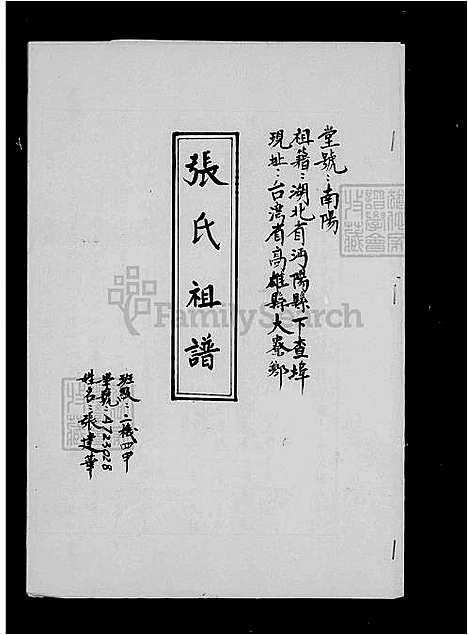 堂號：南陽
祖籍：湖北省沔陽縣下查埠
現址：台灣省高雄縣大寮鄉
張氏祖譜
班級：二機四甲
學號：4723028
姓名：張建華
FamilySearch